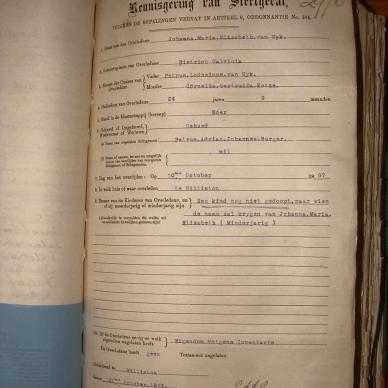 Kennisgeving van Sterfgeval,
VOLGENS DE BEPALINGEN VERVAT IN ARTIKEL 9, ORDONNANTIE No. 104,
1. Naam van den Overledene Johanna Maria Elizabeth van Wyk.
2. Geboorteplaats van Overledene District Calvinia
3. Namen der Ouders van Overledene Vader Petrus Lodovicus van Wyk.
Moeder Cornelia Gertruida Kotze.
4. Ouderdom van Overledene 24 jaren 9 maanden
5. Stand in de Maatschappij (beroep) Boer
6. Gehuwd of Ongehuwd, Weduwnaar of Weduwe Gehuwd
Petrus Adrian Johannes Burger.
nil
7. Dag van het overlijden: Op October
8. In welk huis of waar overleden te Williston
9. Namen van de Kinderen van Overledene, en of zij meerderjarig of minderjarig zijn Een kind nog niet gedoopt, maar wien
de naam zal krygen van Johanna Maria
Elizabeth ( Minderjarig )
10. Of de Overledene eenig en welk eigendom nagelaten heeft Eigendom Volgens Inventaris
De Overledene heeft geen Testament nagelaten
Williston
October